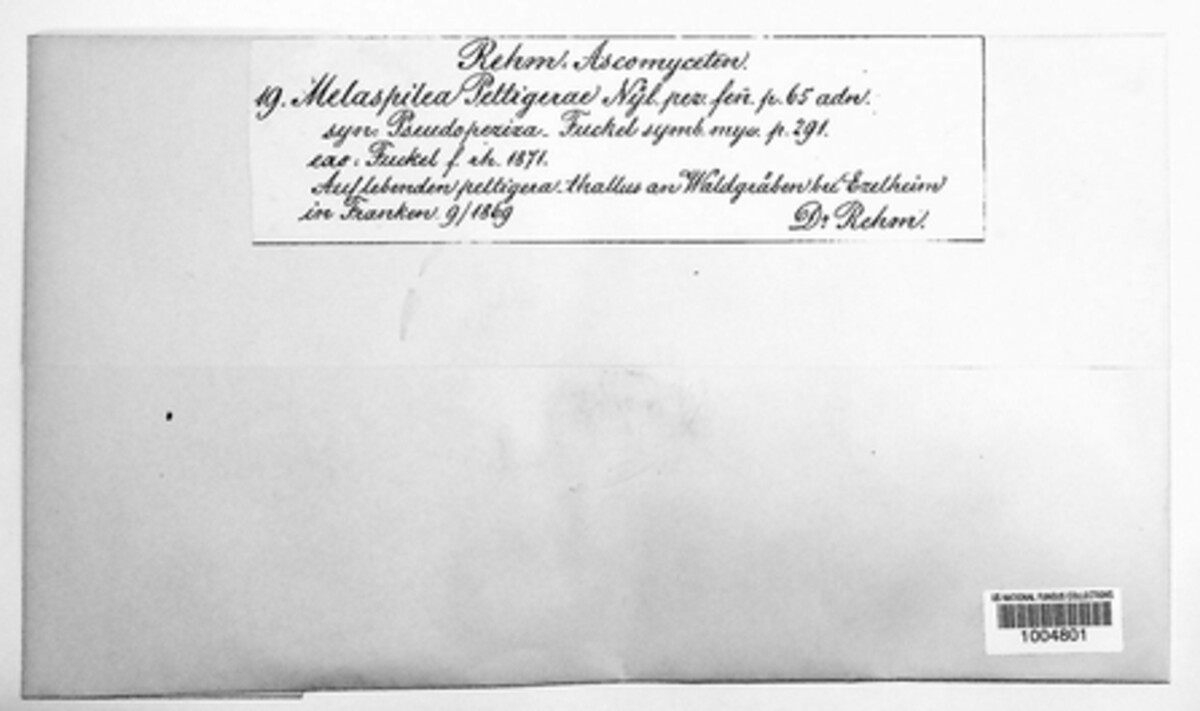 Rehm. Ascomyceten.
19. Melaspilea Peltigerae Nyl. pez. fen̄. p. 65 adn.
syn: Pseudopeziza - Fuckel symb. myc. p. 291.
exs: Fuckel f. rh. 1871.
Auf lebenden peltigera-thallus an Waldgräben bei Ezelheim
in Franken 9/1869
Dr Rehm.
US NATIONAL FUNGUS COLLECTIONS
1004801